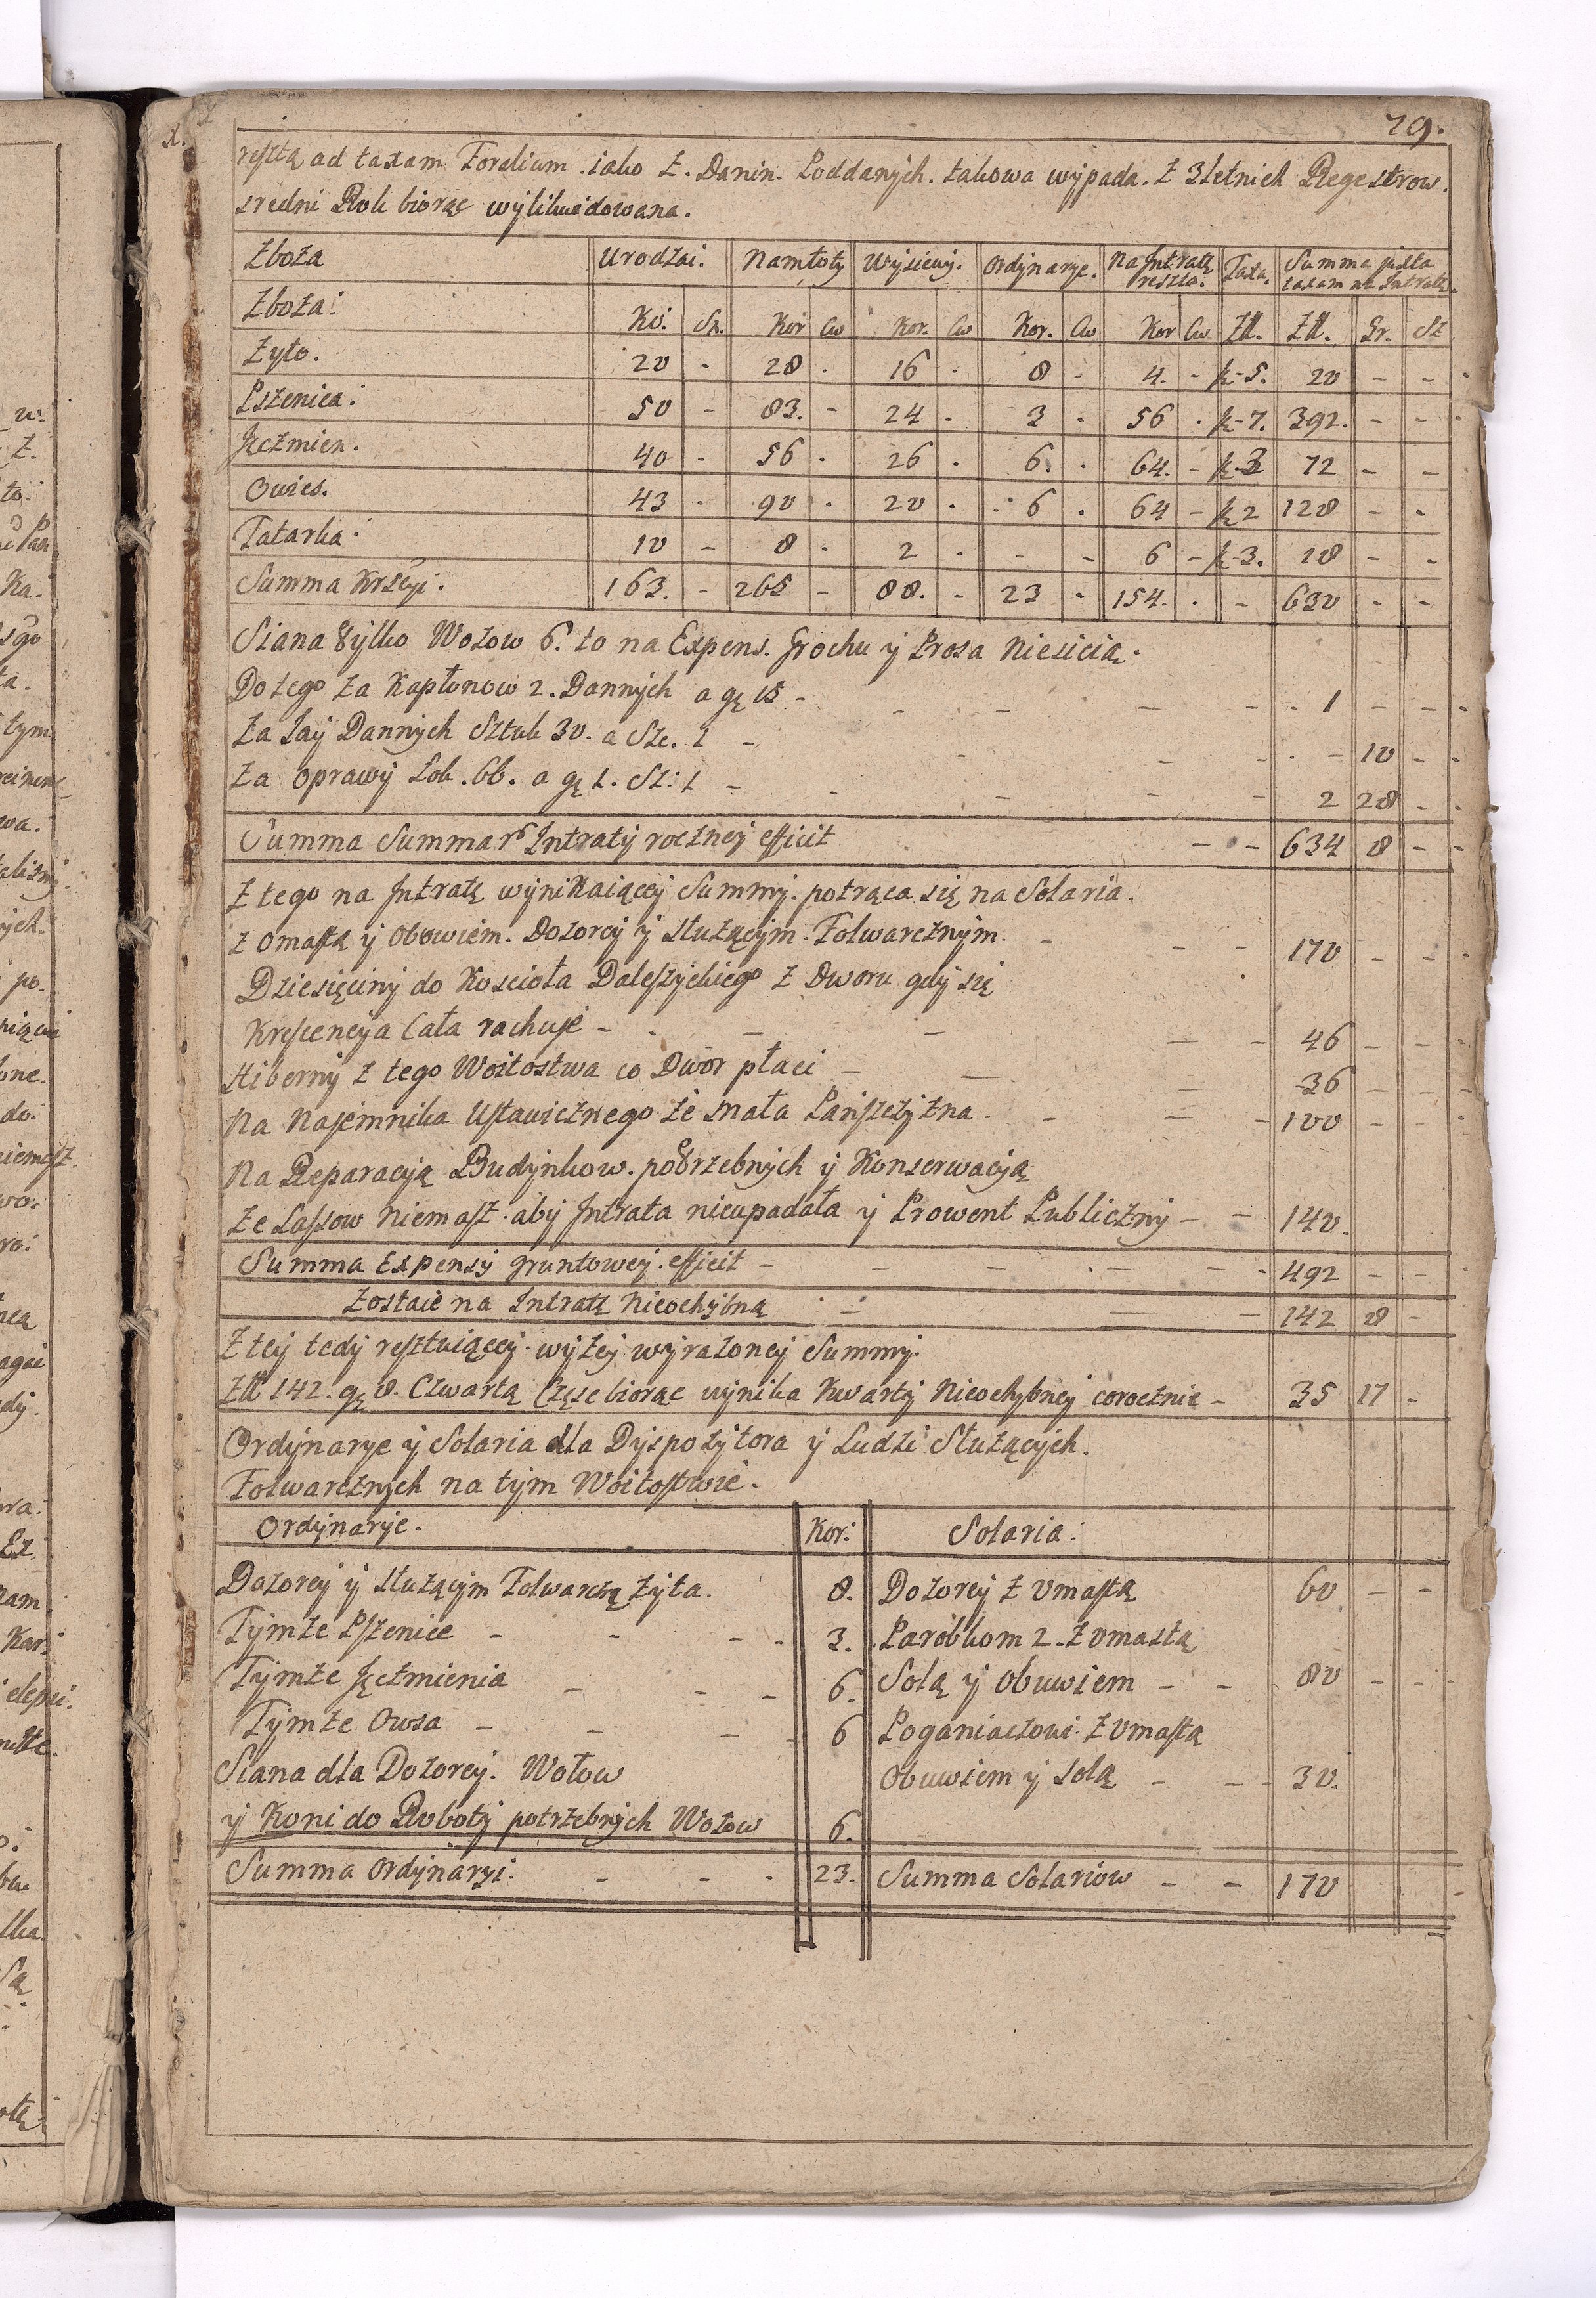 79.
resztą ad taxam Foralium. iako z. Danin. Poddanych. takowa wypada. z 3letnich Regestrow.
sredni Rok biorąc wylikwidowana.
Zboża Urodzai. Namłoty Wysiewy. Ordynarye. Na Intratę reszta. Taxa. Summa juxta taxam na Intratę.
Zboża: Ko. Sn. Kor Cw Kor. Cw Kor. Cw Kor Cw Złł. Złł. Gr. Sz
Zyto. 20 - 28 . 16 . 8 - 4. - k-5. 20 - -
Pszenica: 50 - 83. - 24 - 3 . 56 . k-7. 392. - -
Jęczmien. 40 - 56 . 26 . 6 . 64. - k-3 72 - -
Owies. 43 . 90 . 20 . 6 . 64 - k 2 128 - -
Tatarka. 10 - 8 . 2 . - - 6 - k-3. 18 - -
Summa Krscyi. 163. - 265 - 88. - 23 - 154. . - 630 - -
Siana tylko Wozow 6. to na Expens. Grochu y Prosa niesieią.
Do tego za Kapłonow 2. Dannych a gę 15 - 1 - -
Za Jay Dannych Sztuk 30. a Sze. 1 - - 10 -
Za oprawy Zob. 66. a gę 1. Sz: 1 - 2 28 -
Summa Summar Intraty roczney efficit - - 634 8 -
Z tego na Intratę wynikaiącey Summy. potrąca się na Solaria.
z omastą y Obowiem. Dozorcy y służącym. Folwarcznym. - 170 - -
Dziesięciny do Koscioła Daleszyckiego z Dworu gdy się
Krescencya Cała rachuje - 46 - -
Hiberny z tego Woitostwa co Dwor płaci - 36 -
Na Najemnika Ustawicznego że mała Panszczyzna. - 100 - -
Na Reparacyą Budynkow. potrzebnych y Konserwacyą
że Lassow niemasz. aby Intrata nieupadała y Prowent Publiczny - - 140.
Summa Expensy gruntowey. efficit - 492 - -
Zostaie na Intratę Nieochybną - 142 8 -
Z tey tedy resztuiącey. wyżey wyrażoney Summy.
Złł 142. gę 8. Czwartą Część biorąc wynika Kwarty Nieochybney corocznie - 35 17 -
Ordynarye y Solaria dla Dyspozytora y Ludzi Służących.
Folwarcznych na tym Woitostwie.
Ordynarye. Kor: Solaria:
Dozorcy y służącym Folwarczę Zyta. 8. Dozorcy z Omastą 60 - -
Tymże Pszenice - 3. Parobkom 2. z Omastą
Tymże Jęczmienia - 6. Solą y Obuwiem - - 80 - -
Tymże Owsa - 6 Poganiaczowi z Omastą
Siana dla Dozorcy. Wołow Obuwiem y solą - - 30.
y Koni do Roboty potrzebnych Wozow 6.
Summa Ordynaryi. - 23. Summa Solariow - - 170